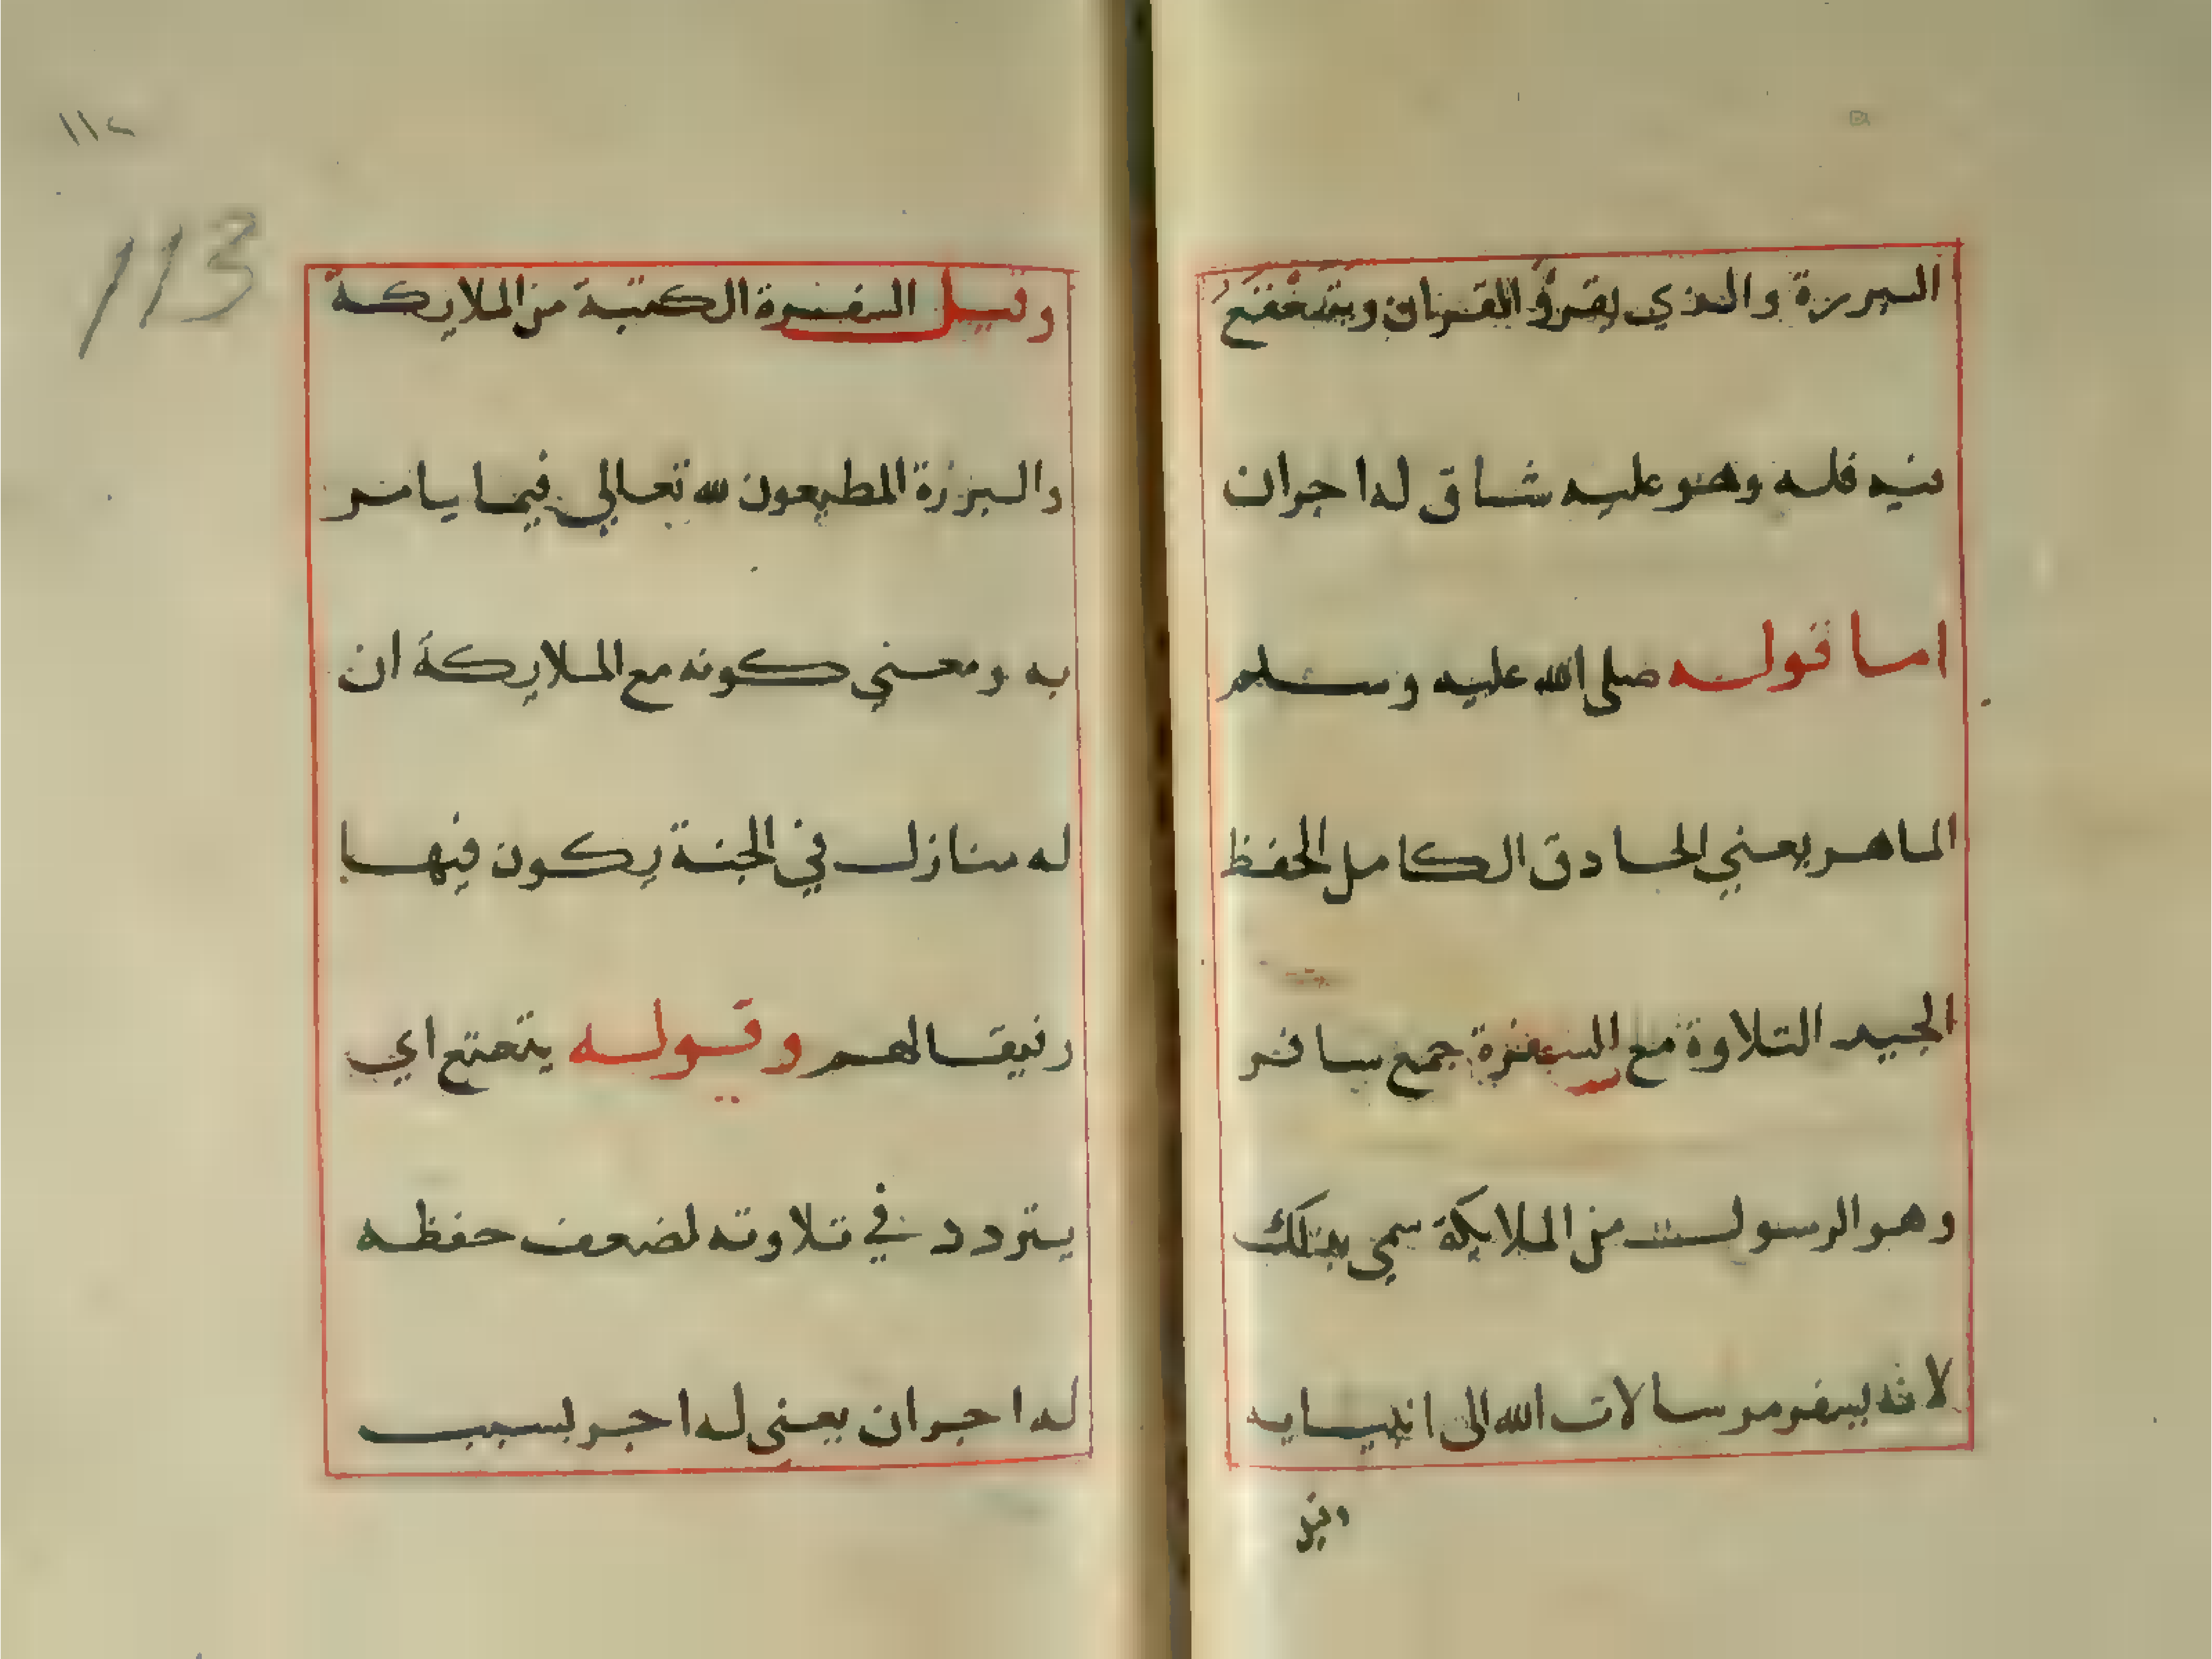 البررة والذي يقرؤ القران ويتتعتع
فيه فله وهو عليه شاق له اجران
اما قوله صلى الله عليه وسلم
الماهر يعني الحادق الكامل الحفظ
الجيد التلاوة مع السفرة جمع سافر
وهو الرسول من الملايكة سمي بذلك
لانه يسفر برسالات الله الى انبيايه
وقيل
١١٢
113
وقيل السفرة الكتبة من الملايكة
والبررة المطيعون لله تعالي فيما يامر
به ومعني كونه مع الملايكة ان
له منازل في الجنة يكون فيها
رفيقا لهم وقوله يتعتع اي
يتردد في تلاوته لضعف حفظه
له اجران يعني له اجر بسبب